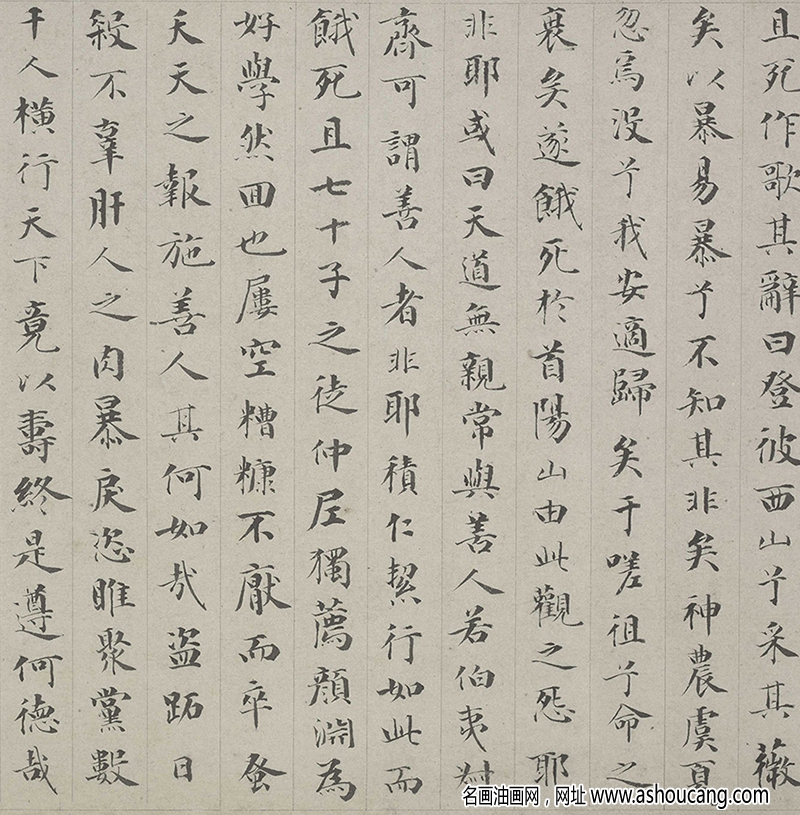 且死作歌其辭曰登彼西山兮采其薇
矣以暴易暴兮不知其非矣神農虞夏
忽焉没兮我安適歸矣于嗟徂兮命之
衰矣遂餓死於首陽山由此觀之怨耶
非耶或曰天道無親常與善人若伯夷叔
齊可謂善人者非耶積仁絜行如此而
餓死且七十子之徒仲尼獨薦顏淵為
好學然回也屢空糟糠不厭而卒蚤
夭天之報施善人其何如哉盜跖日
殺不辜肝人之肉暴戾恣睢聚黨數
千人橫行天下竟以壽終是遵何德哉
名画油画网，网址 www.ashoucang.com